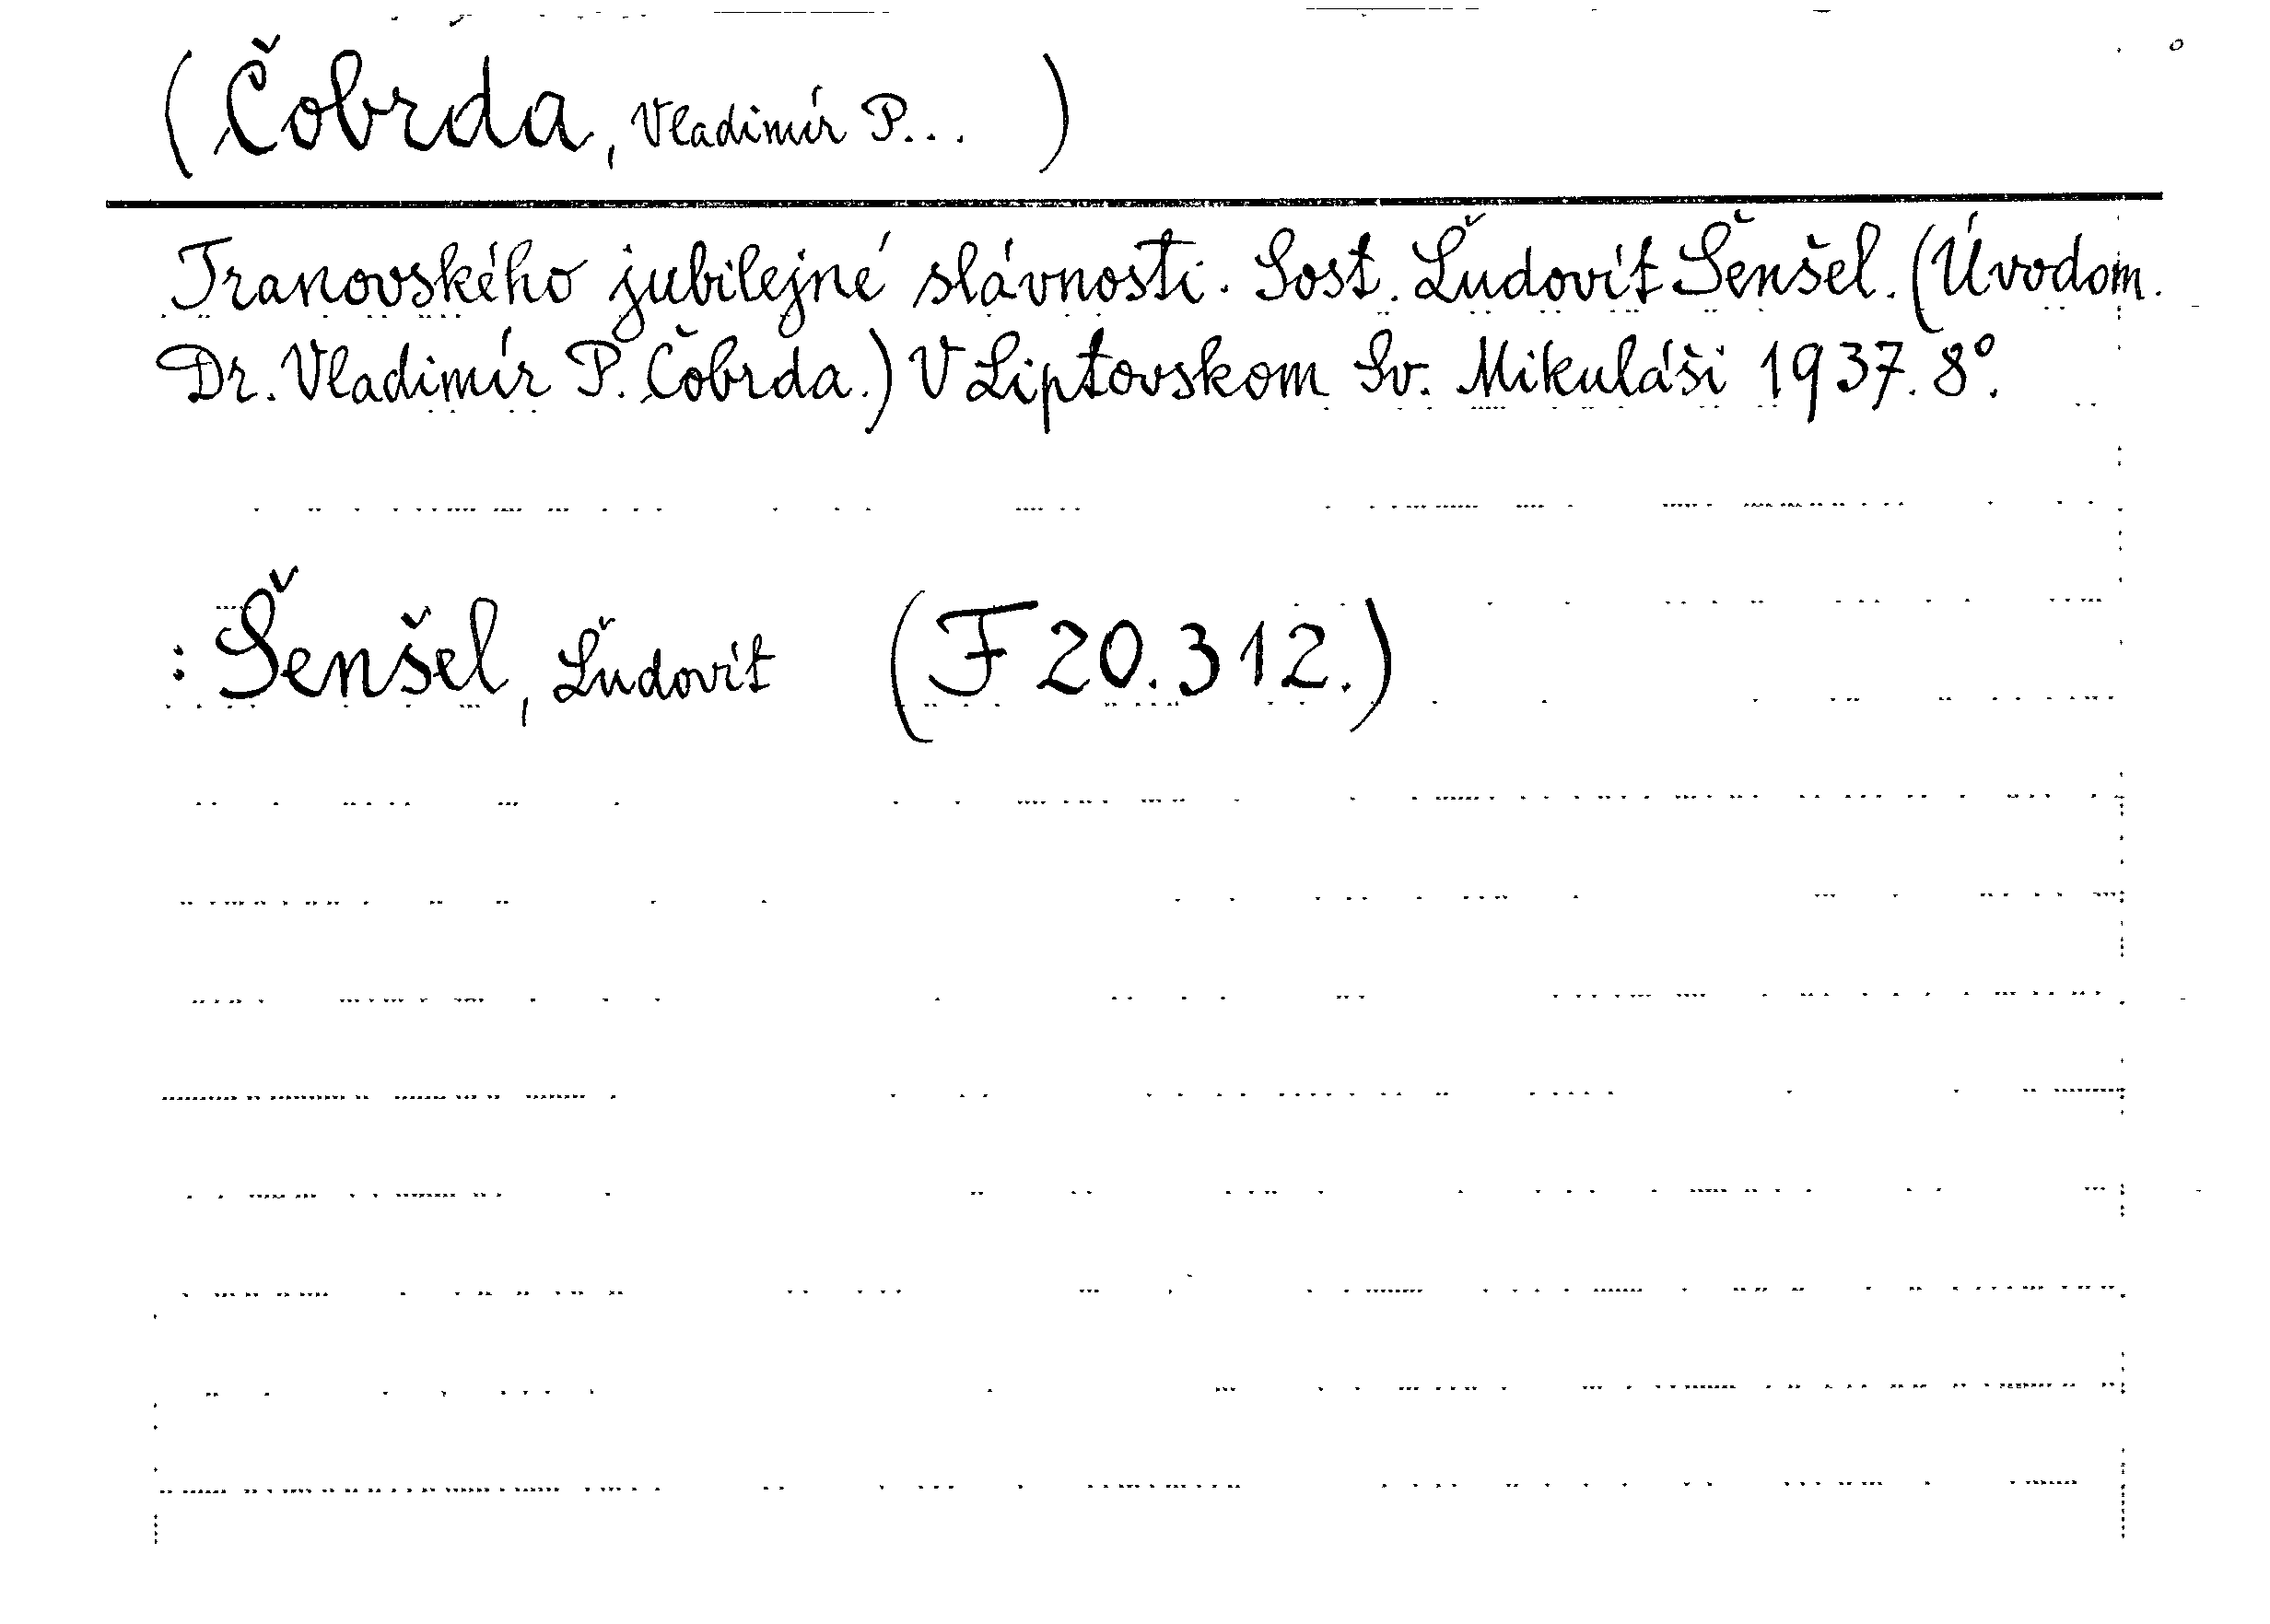 (Čobrda, Vladimír P... )
Tranovského jubilejné slávnosti. Sost. Ľudovít Šenšel. (Úvodom.
Dr. Vladimír P. Čobrda.) V Liptovskom Sv. Mikuláši 1937. 8°.
: Šenšel, Ľudovít (F 20.312.)